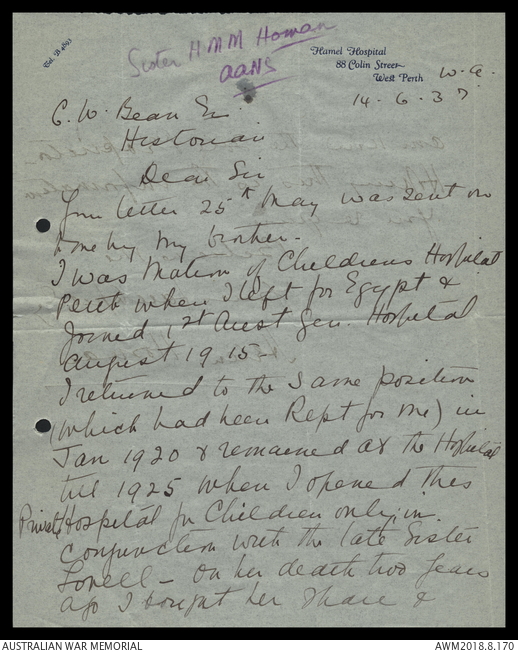 Tel. B 4803
Sister H M M Homan
AANS
Hamel Hospital
88 Colin Street
West Perth
W. A.
14. 6. 37
C. W. Bean Esq.
Historian
Dear Sir
Your letter 25th May was sent on
to me by my brother.
I was Matron of Childrens Hospital
Perth when I left for Egypt &
Joined 1st Aust Gen. Hospital
August 1915 -
I returned to the same position
(which had been Kept for me) in
Jan 1920 & remained at the Hospital
till 1925 when I opened this
Private Hospital for Children only, in
conjunction with the late Sister
Lovell - on her death two years
ago I bought her share &
AUSTRALIAN WAR MEMORIAL
AWM2018.8.170